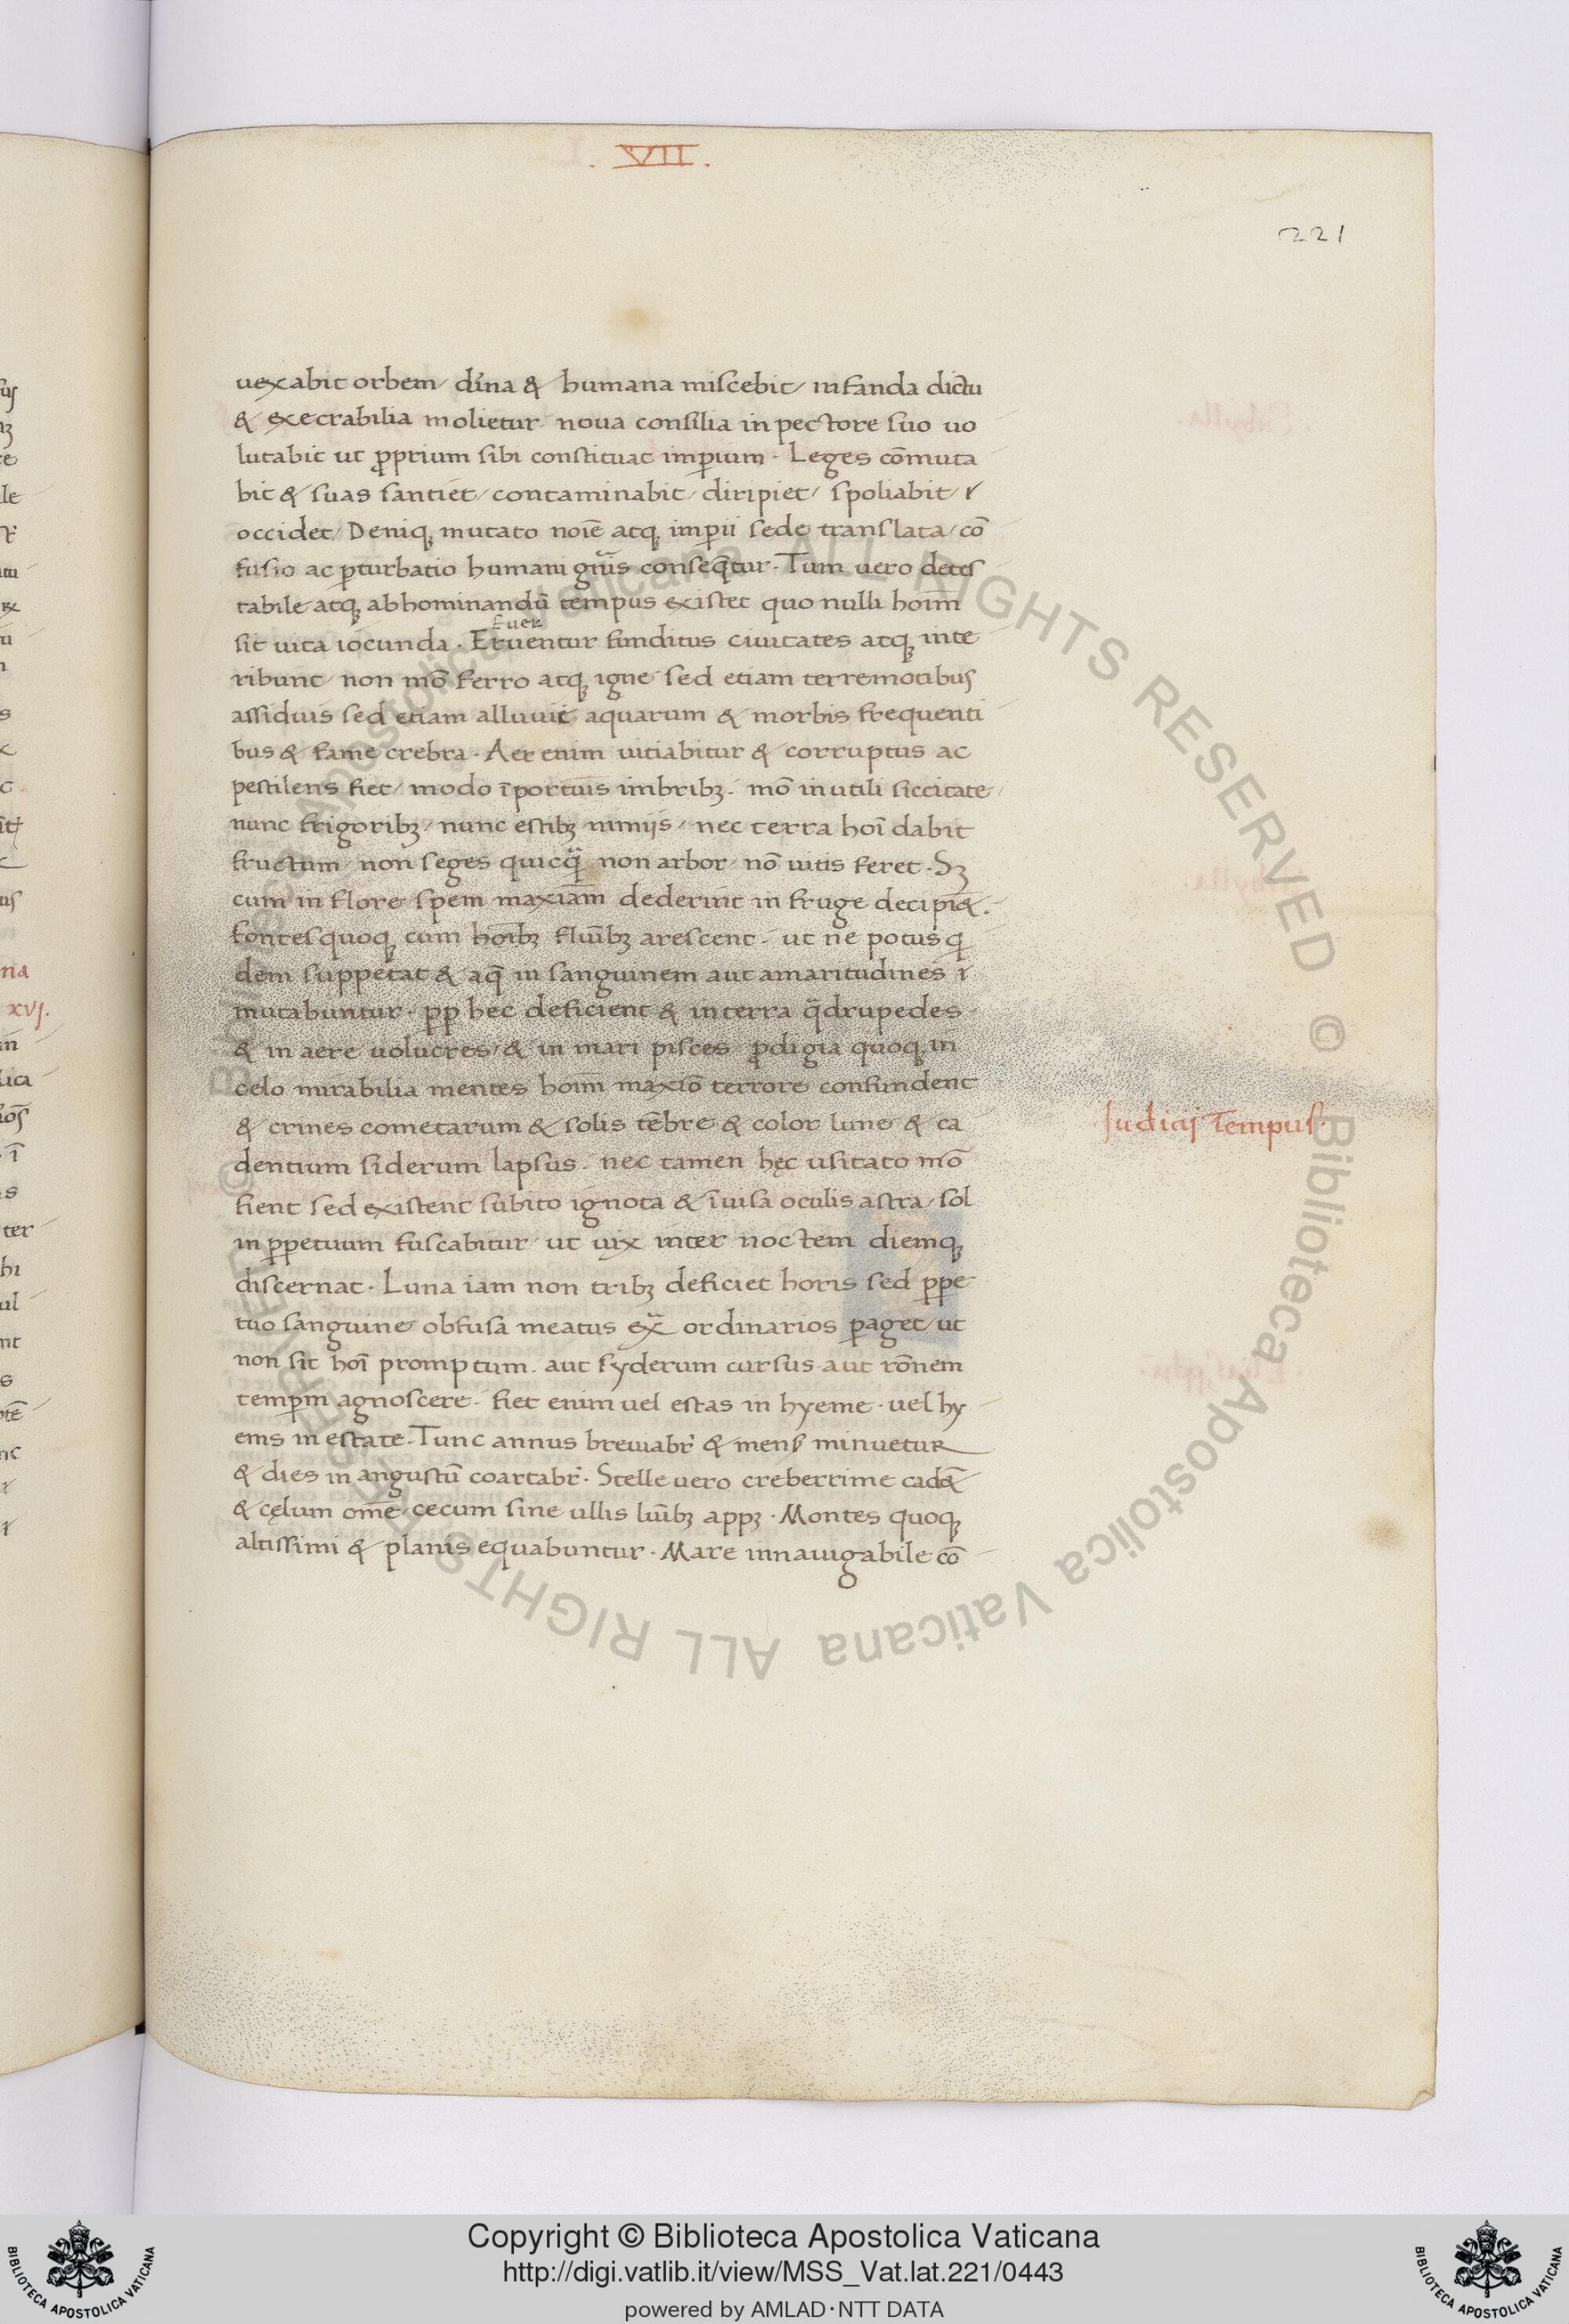 . VII .
221
uexabit orbem / diĩna & humana miscebit / infanda dictu
& execrabilia molietur noua consilia in pectore suo uo
lutabit ut ꝓprium sibi constituat imꝑium · Leges cõmuta
bit & suas santiet / contaminabit / diripiet / spoliabit /
occidet / Deniqꝫ mutato noĩe atqꝫ imꝑii sede translata / cõ
fusio ac ꝑturbatio humani gñis conseq̃tur · Tum uero detes
tabile atqꝫ abhominandũ tempus existet quo nulli hoim̃
fuer
sit uita iocunda · Eruentur funditus ciuitates atqꝫ inte
ribunt / non mõ ferro atqꝫ igne sed etiam terremotibus
assiduis sed etiam alluuie aquarum & morbis frequenti
bus & fame crebra · Aer enim uitiabitur & corruptus ac
pestilens fiet / modo ĩportuis imbribꝫ · mõ inutili siccitate /
nunc frigoribꝫ / nunc estibꝫ nimijs / nec terra hoĩ dabit
fructum / non seges quicq̃ non arbor / nõ uitis feret · Sꝫ
cum in flore spem maxiãm dederint in fruge decipiẽt ·
fontes quoqꝫ cum hoĩbꝫ fluĩbꝫ arescent · ut ne potus q
dem suppetat & aq̃ in sanguinem aut amaritudines ĩ
mutabuntur · ꝓꝑ hec deficient & in terra q̃drupedes
& in aere uolucres / & in mari pisces ꝓdigia quoqꝫ in
celo mirabilia mentes hoim̃ maxiõ terrore confundent
& crines cometarum & solis tẽbre & color lune & ca
Judicij Tempus ·
dentium siderum lapsus · nec tamen hęc usitato mõ
fient sed existent subito ignota & ĩuisa oculis astra / sol
in ꝑpetuum fuscabitur / ut uix inter noctem diemqꝫ
discernat · Luna iam non tribꝫ deficiet horis sed ꝑpe
tuo sanguine obfusa meatus ex̃ ordinarios ꝑaget / ut
non sit hoĩ promptum · aut syderum cursus aut rõnem
temꝑm agnoscere · fiet enim uel estas in hyeme · uel hy
ems in estate · Tunc annus breuiabr̃ & mensis minuetur
& dies in angustũ coartabr̃ · Stelle uero creberrime cadẽt
& cęlum om̃e cecum sine ullis luĩbꝫ appꝫ · Montes quoqꝫ
altissimi & planis equabuntur · Mare innauigabile cõ
Copyright © Biblioteca Apostolica Vaticana
http://digi.vatlib.it/view/MSS_Vat.lat.221/0443
powered by AMLAD · NTT DATA